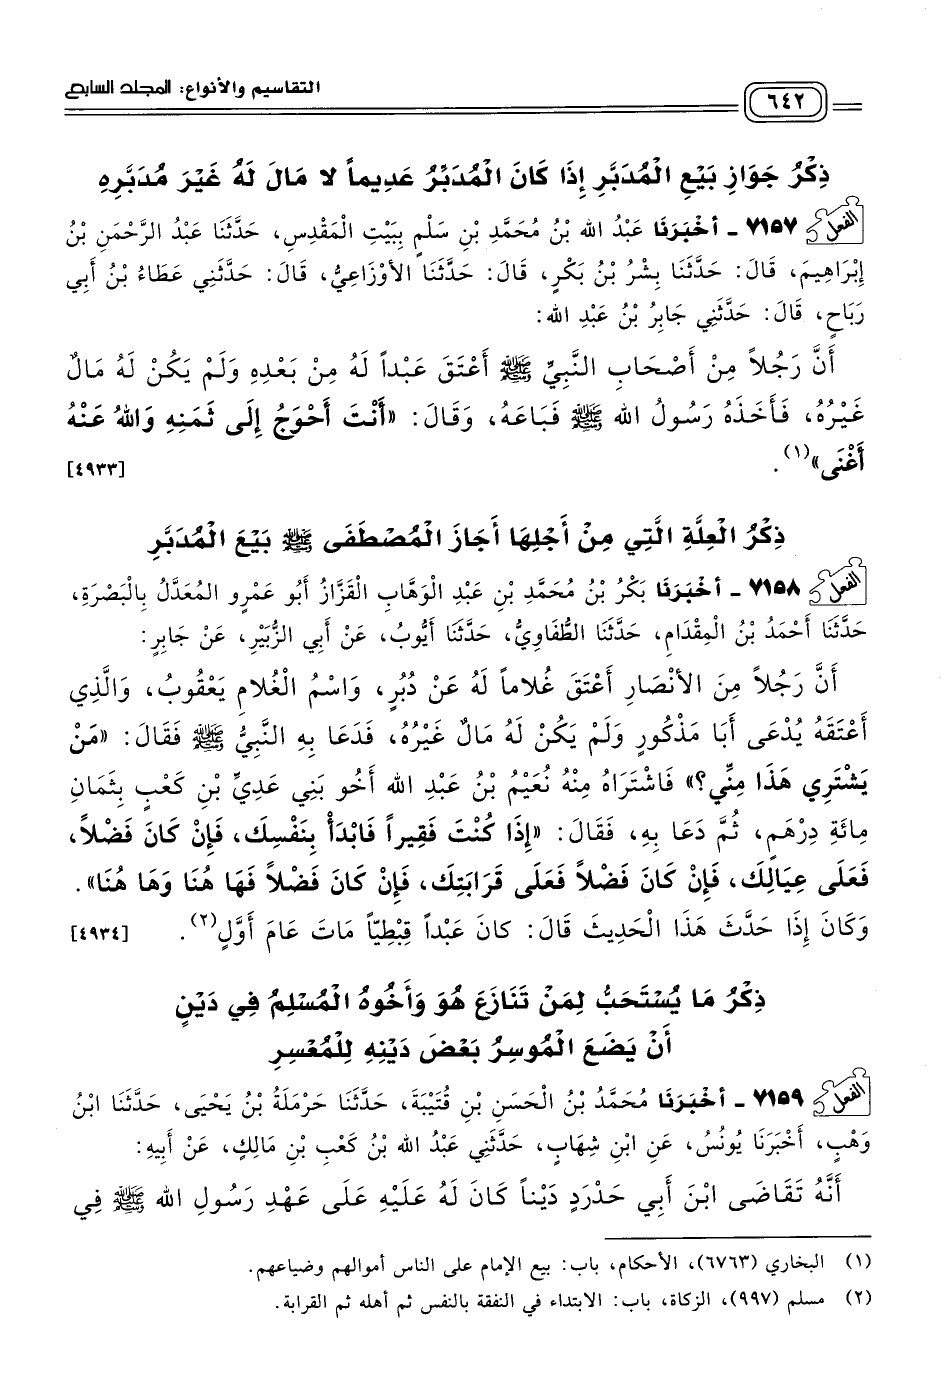 التقاسيم والأنواع: المجلد السابع
٦٤٢
ذِكْرُ جَوَازِ بَيْعِ الْمُدَبَّرِ إِذَا كَانَ الْمُدَبِّرُ عَدِيماً لا مَالَ لَهُ غَيْرَ مُدَبَّرِهِ
الفعل ٧١٥٧ - أَخْبَرَنَا عَبْدُ الله بْنُ مُحَمَّدِ بْنِ سَلْمٍ بِبَيْتِ الْمَقْدِسِ، حَدَّثَنَا عَبْدُ الرَّحْمَنِ بْنُ
إِبْرَاهِيمَ، قَالَ: حَدَّثَنَا بِشْرُ بْنُ بَكْرٍ، قَالَ: حَدَّثَنَا الأَوْزَاعِيُّ، قَالَ: حَدَّثَنِي عَطَاءُ بْنُ أَبِي
رَبَاحٍ، قَالَ: حَدَّثَنِي جَابِرُ بْنُ عَبْدِ الله:
أَنَّ رَجُلاً مِنْ أَصْحَابِ النَّبِيِّ ﷺ أَعْتَقَ عَبْداً لَهُ مِنْ بَعْدِهِ وَلَمْ يَكُنْ لَهُ مَالٌ
غَيْرُهُ، فَأَخَذَهُ رَسُولُ الله ﷺ فَبَاعَهُ، وَقَالَ: «أَنْتَ أَحْوَجُ إِلَى ثَمَنِهِ وَاللهُ عَنْهُ
أَغْنَى»(١). [٤٩٣٣]
ذِكْرُ الْعِلَّةِ الَّتِي مِنْ أَجْلِهَا أَجَازَ الْمُصْطَفَى ﷺ بَيْعَ الْمُدَبَّرِ
الفعل ٧١٥٨ - أَخْبَرَنَا بَكْرُ بْنُ مُحَمَّدِ بْنِ عَبْدِ الْوَهَّابِ الْقَزَّازُ أَبُو عَمْرٍو الْمُعَدَّلُ بِالْبَصْرَةِ،
حَدَّثَنَا أَحْمَدُ بْنُ الْمِقْدَامِ، حَدَّثَنَا الطُّفَاوِيُّ، حَدَّثَنَا أَيُّوبُ، عَنْ أَبِي الزُّبَيْرِ، عَنْ جَابِرٍ:
أَنَّ رَجُلاً مِنَ الأَنْصَارِ أَعْتَقَ غُلاماً لَهُ عَنْ دُبُرٍ، وَاسْمُ الْغُلامِ يَعْقُوبُ، وَالَّذِي
أَعْتَقَهُ يُدْعَى أَبَا مَذْكُورٍ وَلَمْ يَكُنْ لَهُ مَالٌ غَيْرُهُ، فَدَعَا بِهِ النَّبِيُّ ﷺ فَقَالَ: «مَنْ
يَشْتَرِي هَذَا مِنِّي؟» فَاشْتَرَاهُ مِنْهُ نُعَيْمُ بْنُ عَبْدِ الله أَخُو بَنِي عَدِيِّ بْنِ كَعْبٍ بِثَمَانِ
مِائَةِ دِرْهَمٍ، ثُمَّ دَعَا بِهِ، فَقَالَ: «إِذَا كُنْتَ فَقِيراً فَابْدَأْ بِنَفْسِكَ، فَإِنْ كَانَ فَضْلاً،
فَعَلَى عِيَالِكَ، فَإِنْ كَانَ فَضْلاً فَعَلَى قَرَابَتِكَ، فَإِنْ كَانَ فَضْلاً فَهَا هُنَا وَهَا هُنَا».
وَكَانَ إِذَا حَدَّثَ هَذَا الْحَدِيثَ قَالَ: كَانَ عَبْداً قِبْطِيّاً مَاتَ عَامَ أَوَّلٍ(٢). [٤٩٣٤]
ذِكْرُ مَا يُسْتَحَبُّ لِمَنْ تَنَازَعَ هُوَ وَأَخُوهُ الْمُسْلِمُ فِي دَيْنٍ
أَنْ يَضَعَ الْمُوسِرُ بَعْضَ دَيْنِهِ لِلْمُعْسِرِ
الفعل ٧١٥٩ - أَخْبَرَنَا مُحَمَّدُ بْنُ الْحَسَنِ بْنِ قُتَيْبَةَ، حَدَّثَنَا حَرْمَلَةُ بْنُ يَحْيَى، حَدَّثَنَا ابْنُ
وَهْبٍ، أَخْبَرَنَا يُونُسُ، عَنِ ابْنِ شِهَابٍ، حَدَّثَنِي عَبْدُ الله بْنُ كَعْبِ بْنِ مَالِكٍ، عَنْ أَبِيهِ:
أَنَّهُ تَقَاضَى ابْنَ أَبِي حَدْرَدٍ دَيْناً كَانَ لَهُ عَلَيْهِ عَلَى عَهْدِ رَسُولِ الله ﷺ فِي
(١) البخاري (٦٧٦٣)، الأحكام، باب: بيع الإمام على الناس أموالهم وضياعهم.
(٢) مسلم (٩٩٧)، الزكاة، باب: الابتداء في النفقة بالنفس ثم أهله ثم القرابة.